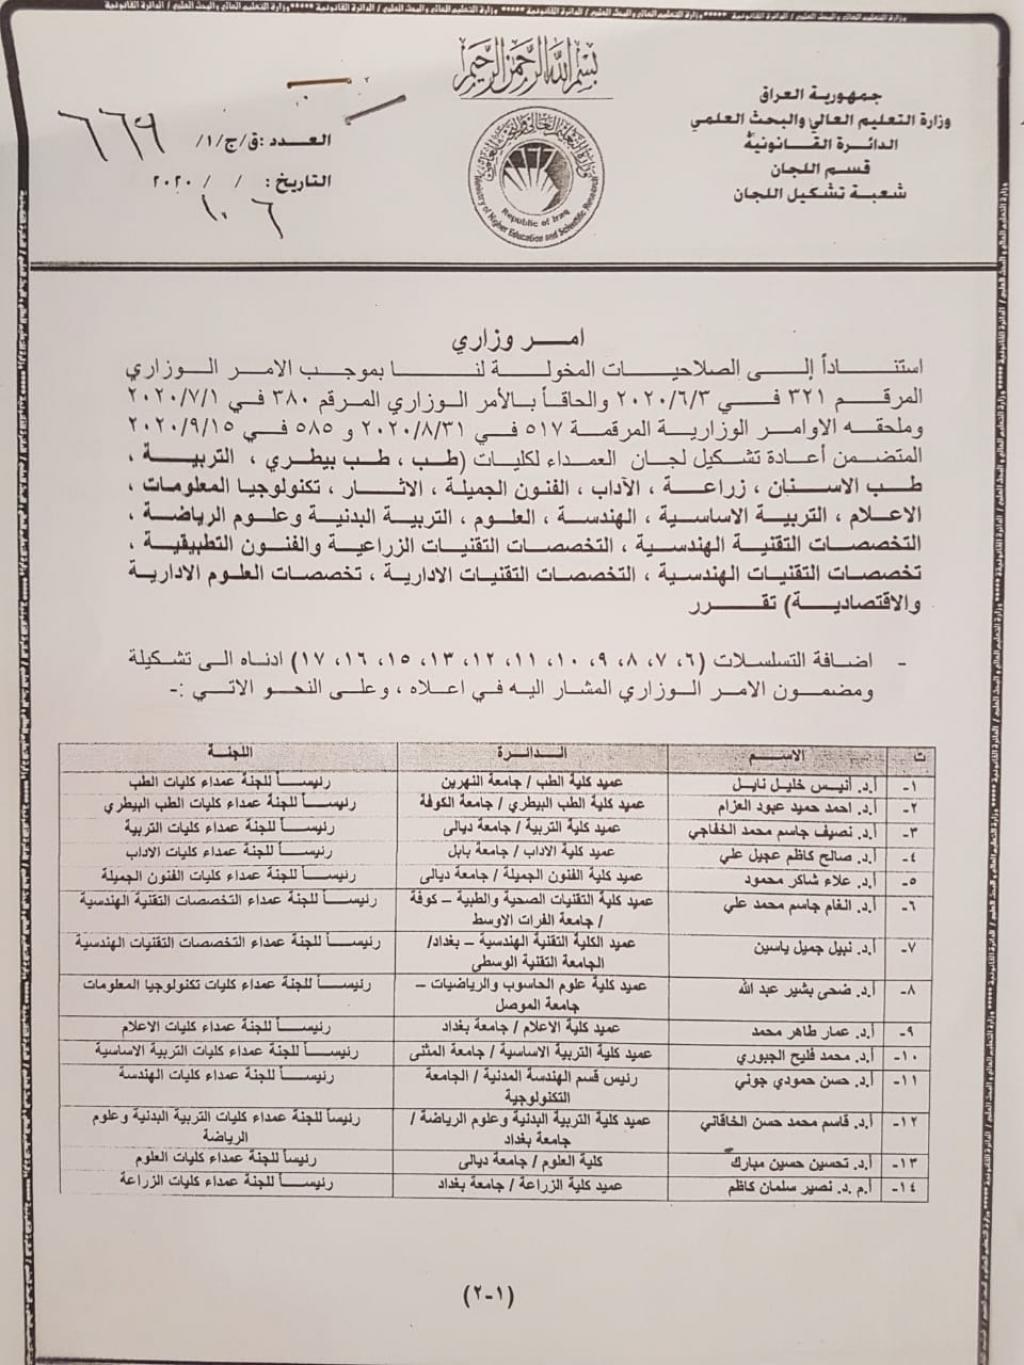 وزارة التعليم العالي والبحث العلمي / الدائرة القانونية ***** وزارة التعليم العالي والبحث العلمي / الدائرة القانونية
بسم الله الرحمن الرحيم
جمهورية العراق
وزارة التعليم العالي والبحث العلمي
الدائرة القانونية
قسم اللجان
شعبة تشكيل اللجان
Republic of Iraq
Ministry of Higher Education and Scientific Research
العدد :ق/ج/١/ ٦٦٩
التاريخ: ٦ / ١٠ / ٢٠٢٠
امر وزاري
استناداً إلى الصلاحيات المخولة لنا بموجب الامر الوزاري
المرقم ٣٢١ في ٢٠٢٠/٦/٣ والحاقاً بالأمر الوزاري المرقم ٣٨٠ في ٢٠٢٠/٧/١
وملحقه الاوامر الوزارية المرقمة ٥١٧ في ٢٠٢٠/٨/٣١ و ٥٨٥ في ٢٠٢٠/٩/١٥
المتضمن أعادة تشكيل لجان العمداء لكليات (طب ، طب بيطري ، التربية ،
طب الاسنان ، زراعة ، الآداب ، الفنون الجميلة ، الاثار ، تكنولوجيا المعلومات ،
الاعلام ، التربية الاساسية ، الهندسة ، العلوم ، التربية البدنية وعلوم الرياضة ،
التخصصات التقنية الهندسية ، التخصصات التقنيات الزراعية والفنون التطبيقية ،
تخصصات التقنيات الهندسية ، التخصصات التقنيات الادارية ، تخصصات العلوم الادارية
والاقتصادية) تقرر
- اضافة التسلسلات (٦، ٧، ٨، ٩، ١٠، ١١، ١٢، ١٣، ١٥، ١٦، ١٧) ادناه الى تشكيلة
ومضمون الامر الوزاري المشار اليه في اعلاه ، وعلى النحو الاتي :-
ت الاسم الدائرة اللجنة
١- أ.د. أنيس خليل نايل عميد كلية الطب / جامعة النهرين رئيساً للجنة عمداء كليات الطب
٢- أ.د. احمد حميد عبود العزام عميد كلية الطب البيطري / جامعة الكوفة رئيساً للجنة عمداء كليات الطب البيطري
٣- أ.د. نصيف جاسم محمد الخفاجي عميد كلية التربية / جامعة ديالى رئيساً للجنة عمداء كليات التربية
٤- أ.د. صالح كاظم عجيل علي عميد كلية الاداب / جامعة بابل رئيساً للجنة عمداء كليات الاداب
٥- أ.د. علاء شاكر محمود عميد كلية الفنون الجميلة / جامعة ديالى رئيساً للجنة عمداء كليات الفنون الجميلة
٦- أ.د. انغام جاسم محمد علي عميد كلية التقنيات الصحية والطبية – كوفة رئيساً للجنة عمداء التخصصات التقنية الهندسية
/ جامعة الفرات الاوسط
٧- أ.د. نبيل جميل ياسين عميد الكلية التقنية الهندسية – بغداد/ رئيساً للجنة عمداء التخصصات التقنيات الهندسية
الجامعة التقنية الوسطى
٨- أ.د. ضحى بشير عبد الله عميد كلية علوم الحاسوب والرياضيات – رئيساً للجنة عمداء كليات تكنولوجيا المعلومات
جامعة الموصل
٩- أ.د. عمار طاهر محمد عميد كلية الاعلام / جامعة بغداد رئيساً للجنة عمداء كليات الاعلام
١٠- أ.د. محمد فليح الجبوري عميد كلية التربية الاساسية / جامعة المثنى رئيساً للجنة عمداء كليات التربية الاساسية
١١- أ.د. حسن حمودي جوني رئيس قسم الهندسة المدنية / الجامعة رئيساً للجنة عمداء كليات الهندسة
التكنولوجية
١٢- أ.د. قاسم محمد حسن الخاقاني عميد كلية التربية البدنية وعلوم الرياضة / رئيساً للجنة عمداء كليات التربية البدنية وعلوم
جامعة بغداد الرياضة
١٣- أ.د. تحسين حسين مبارك كلية العلوم / جامعة ديالى رئيساً للجنة عمداء كليات العلوم
١٤- أ.م .د. نصير سلمان كاظم عميد كلية الزراعة / جامعة بغداد رئيساً للجنة عمداء كليات الزراعة
(١-٢)